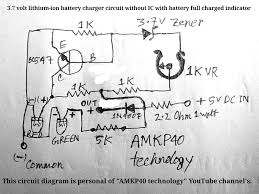 3.7 volt lithium-ion battery charger circuit without IC with battery full charged indicator
1K
3.7V Zener
E
B
BC547
C
1K VR
1K
1K
(-)
(+)
OUT
+
+ 5V DC IN
1N4007
2.2 Ohm 1 watt
GREEN
5K
(-)
Common
AMKP40
technology
This circuit diagram is personal of "AMKP40 technology" YouTube channel's.